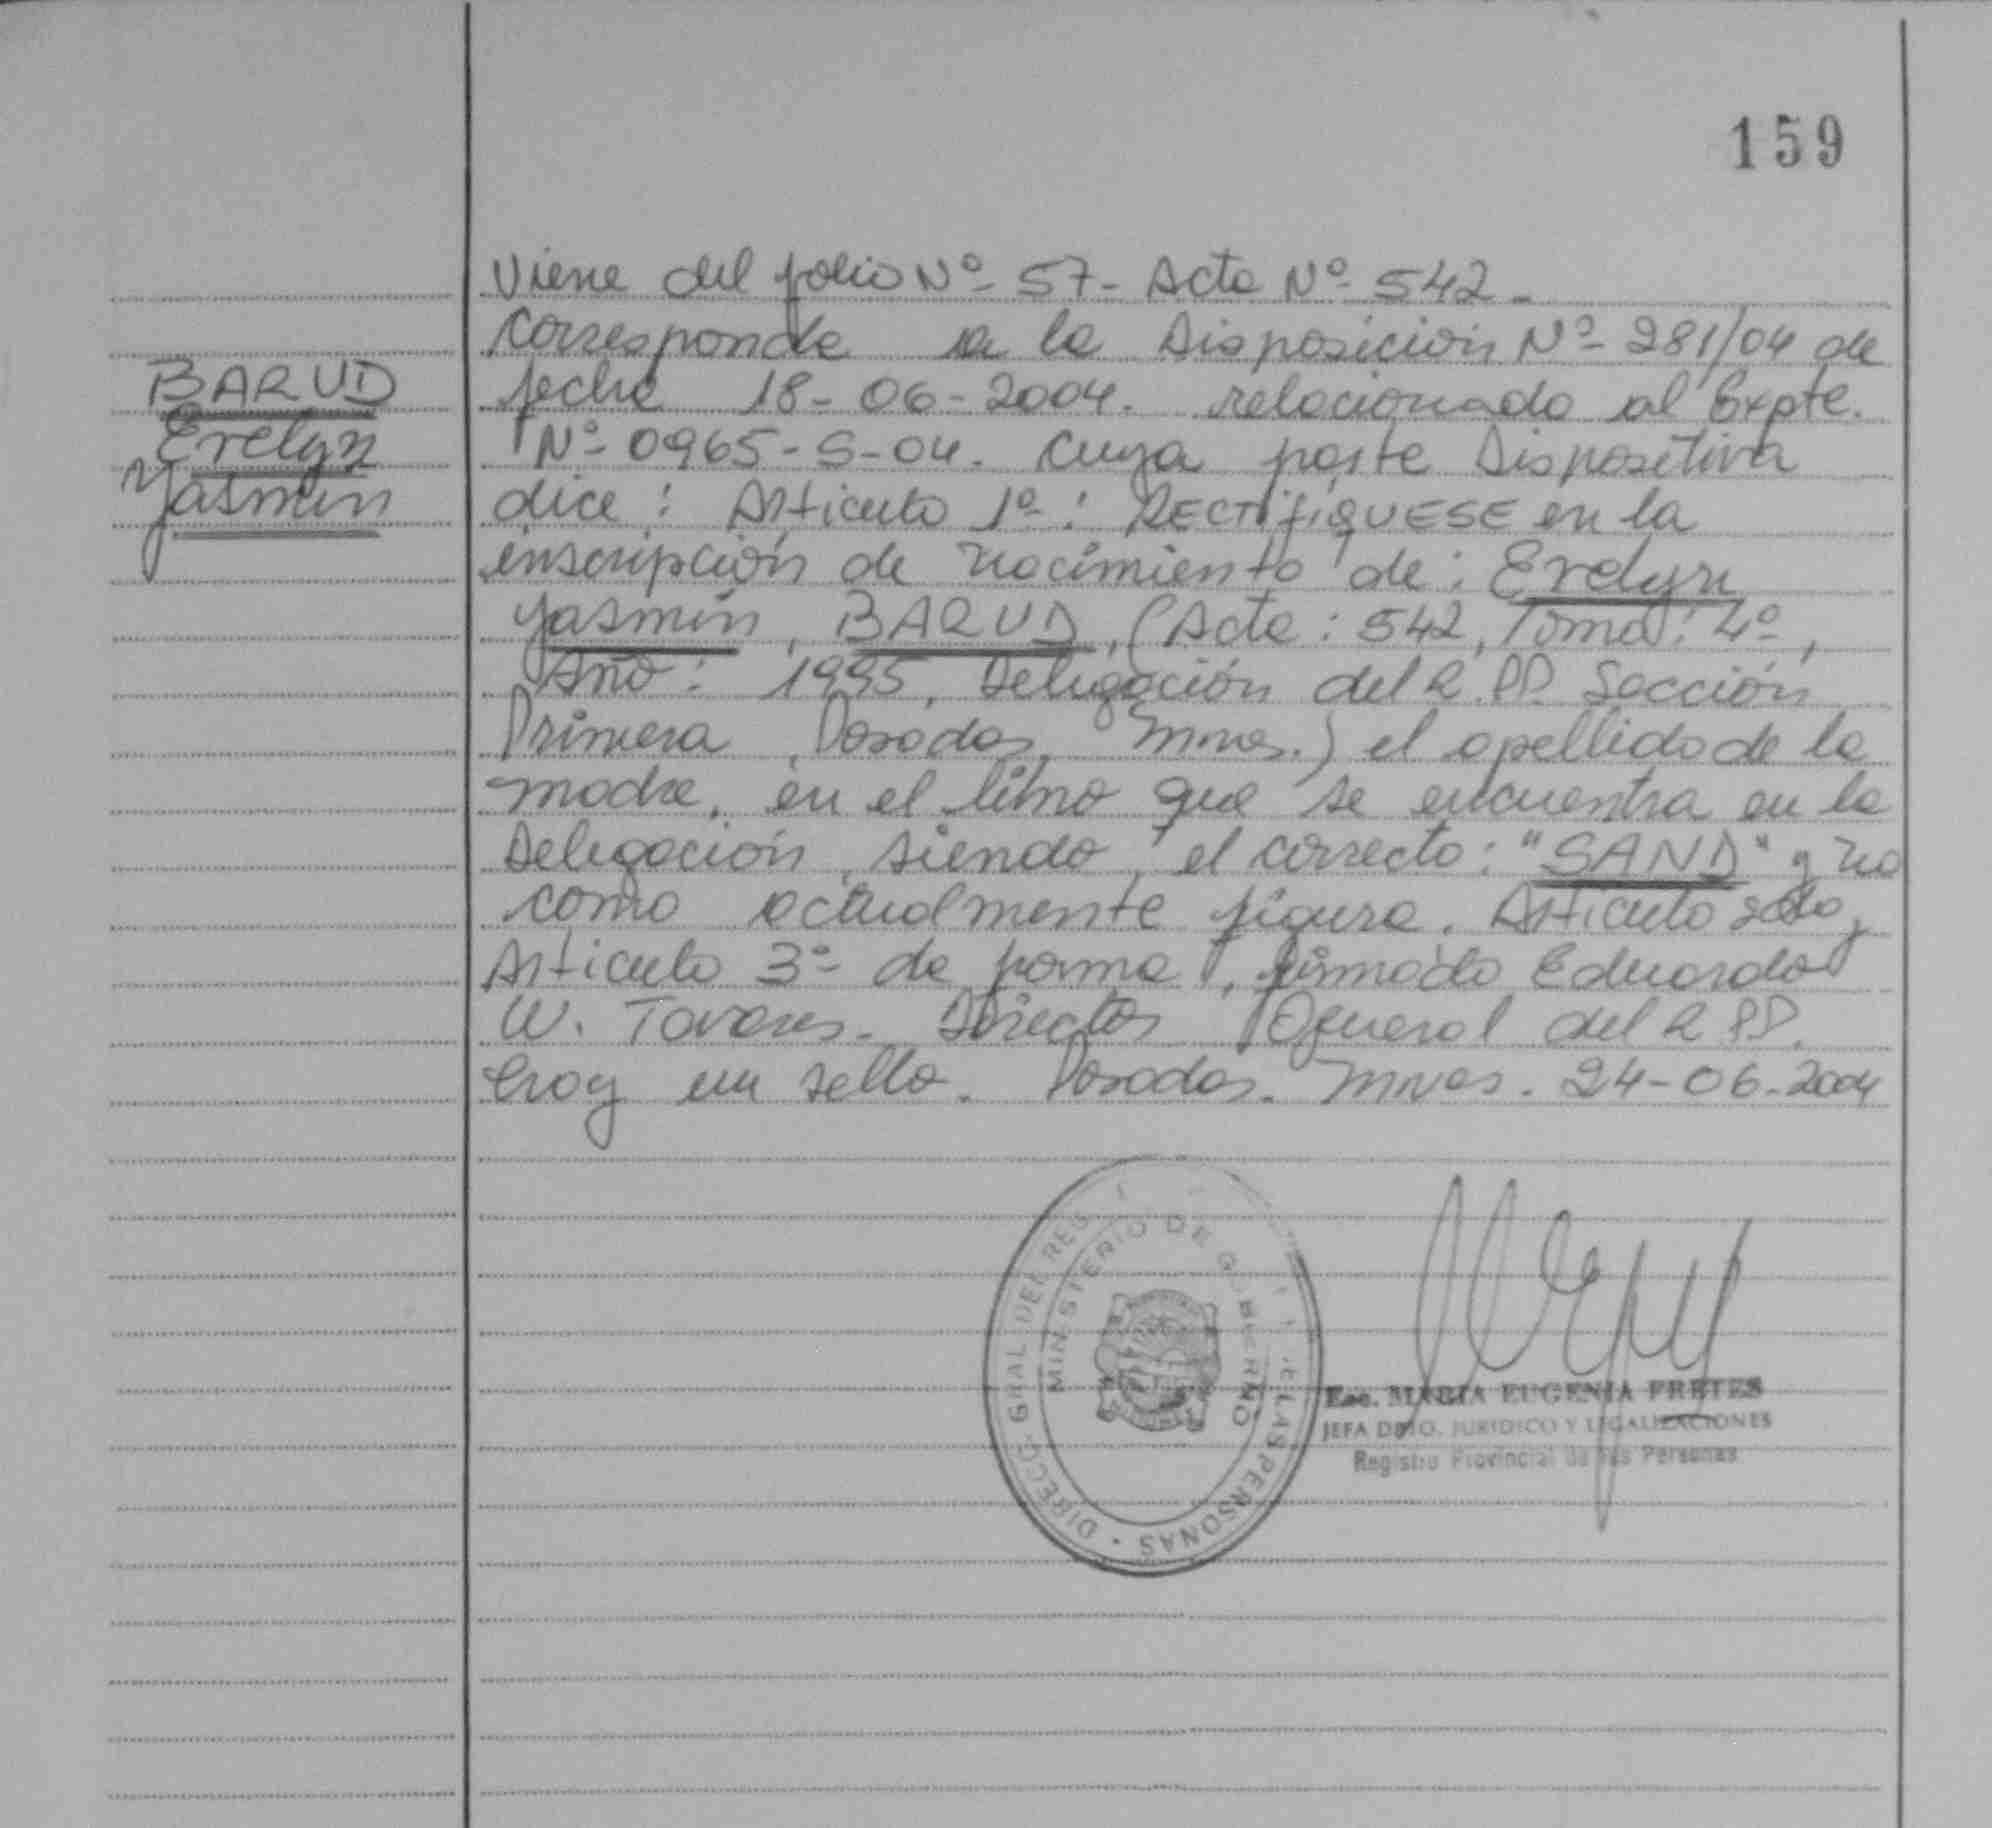 159
Viene del folio Nº 57 - Acta Nº 542 -
Corresponde a la Disposición Nº 281/04 de
fecha 18-06-2004. relacionado al Expte.
Nº 0965-S-04. Cuya parte Dispositiva
dice: Articulo 1º: RECTIFIQUESE en la
inscripción de nacimiento de: Evelyn
Yasmin, BARUD, (Acta: 542, Tomo: 4º,
Año: 1995, Delegación del R.PP. Sección
Primera, Posadas, Mnes.) el apellido de la
madre, en el libro que se encuentra en la
Delegación, siendo el correcto: "SAND" y no
como actualmente figura. Articulo 2do y
Articulo 3º de forma, firmado Eduardo
W. Tavares - Director General del R PP.
Hay un sello. Posadas. Mnes. 24-06-2004
BARUD
Evelyn
Yasmin
DIRECC. GRAL DEL REG LAS PERSONAS
MINISTERIO DE GOBIERNO
Esc. MARIA EUGENIA FRETES
JEFA DPTO. JURIDICO Y LEGALIZACIONES
Registro Provincial de las Personas